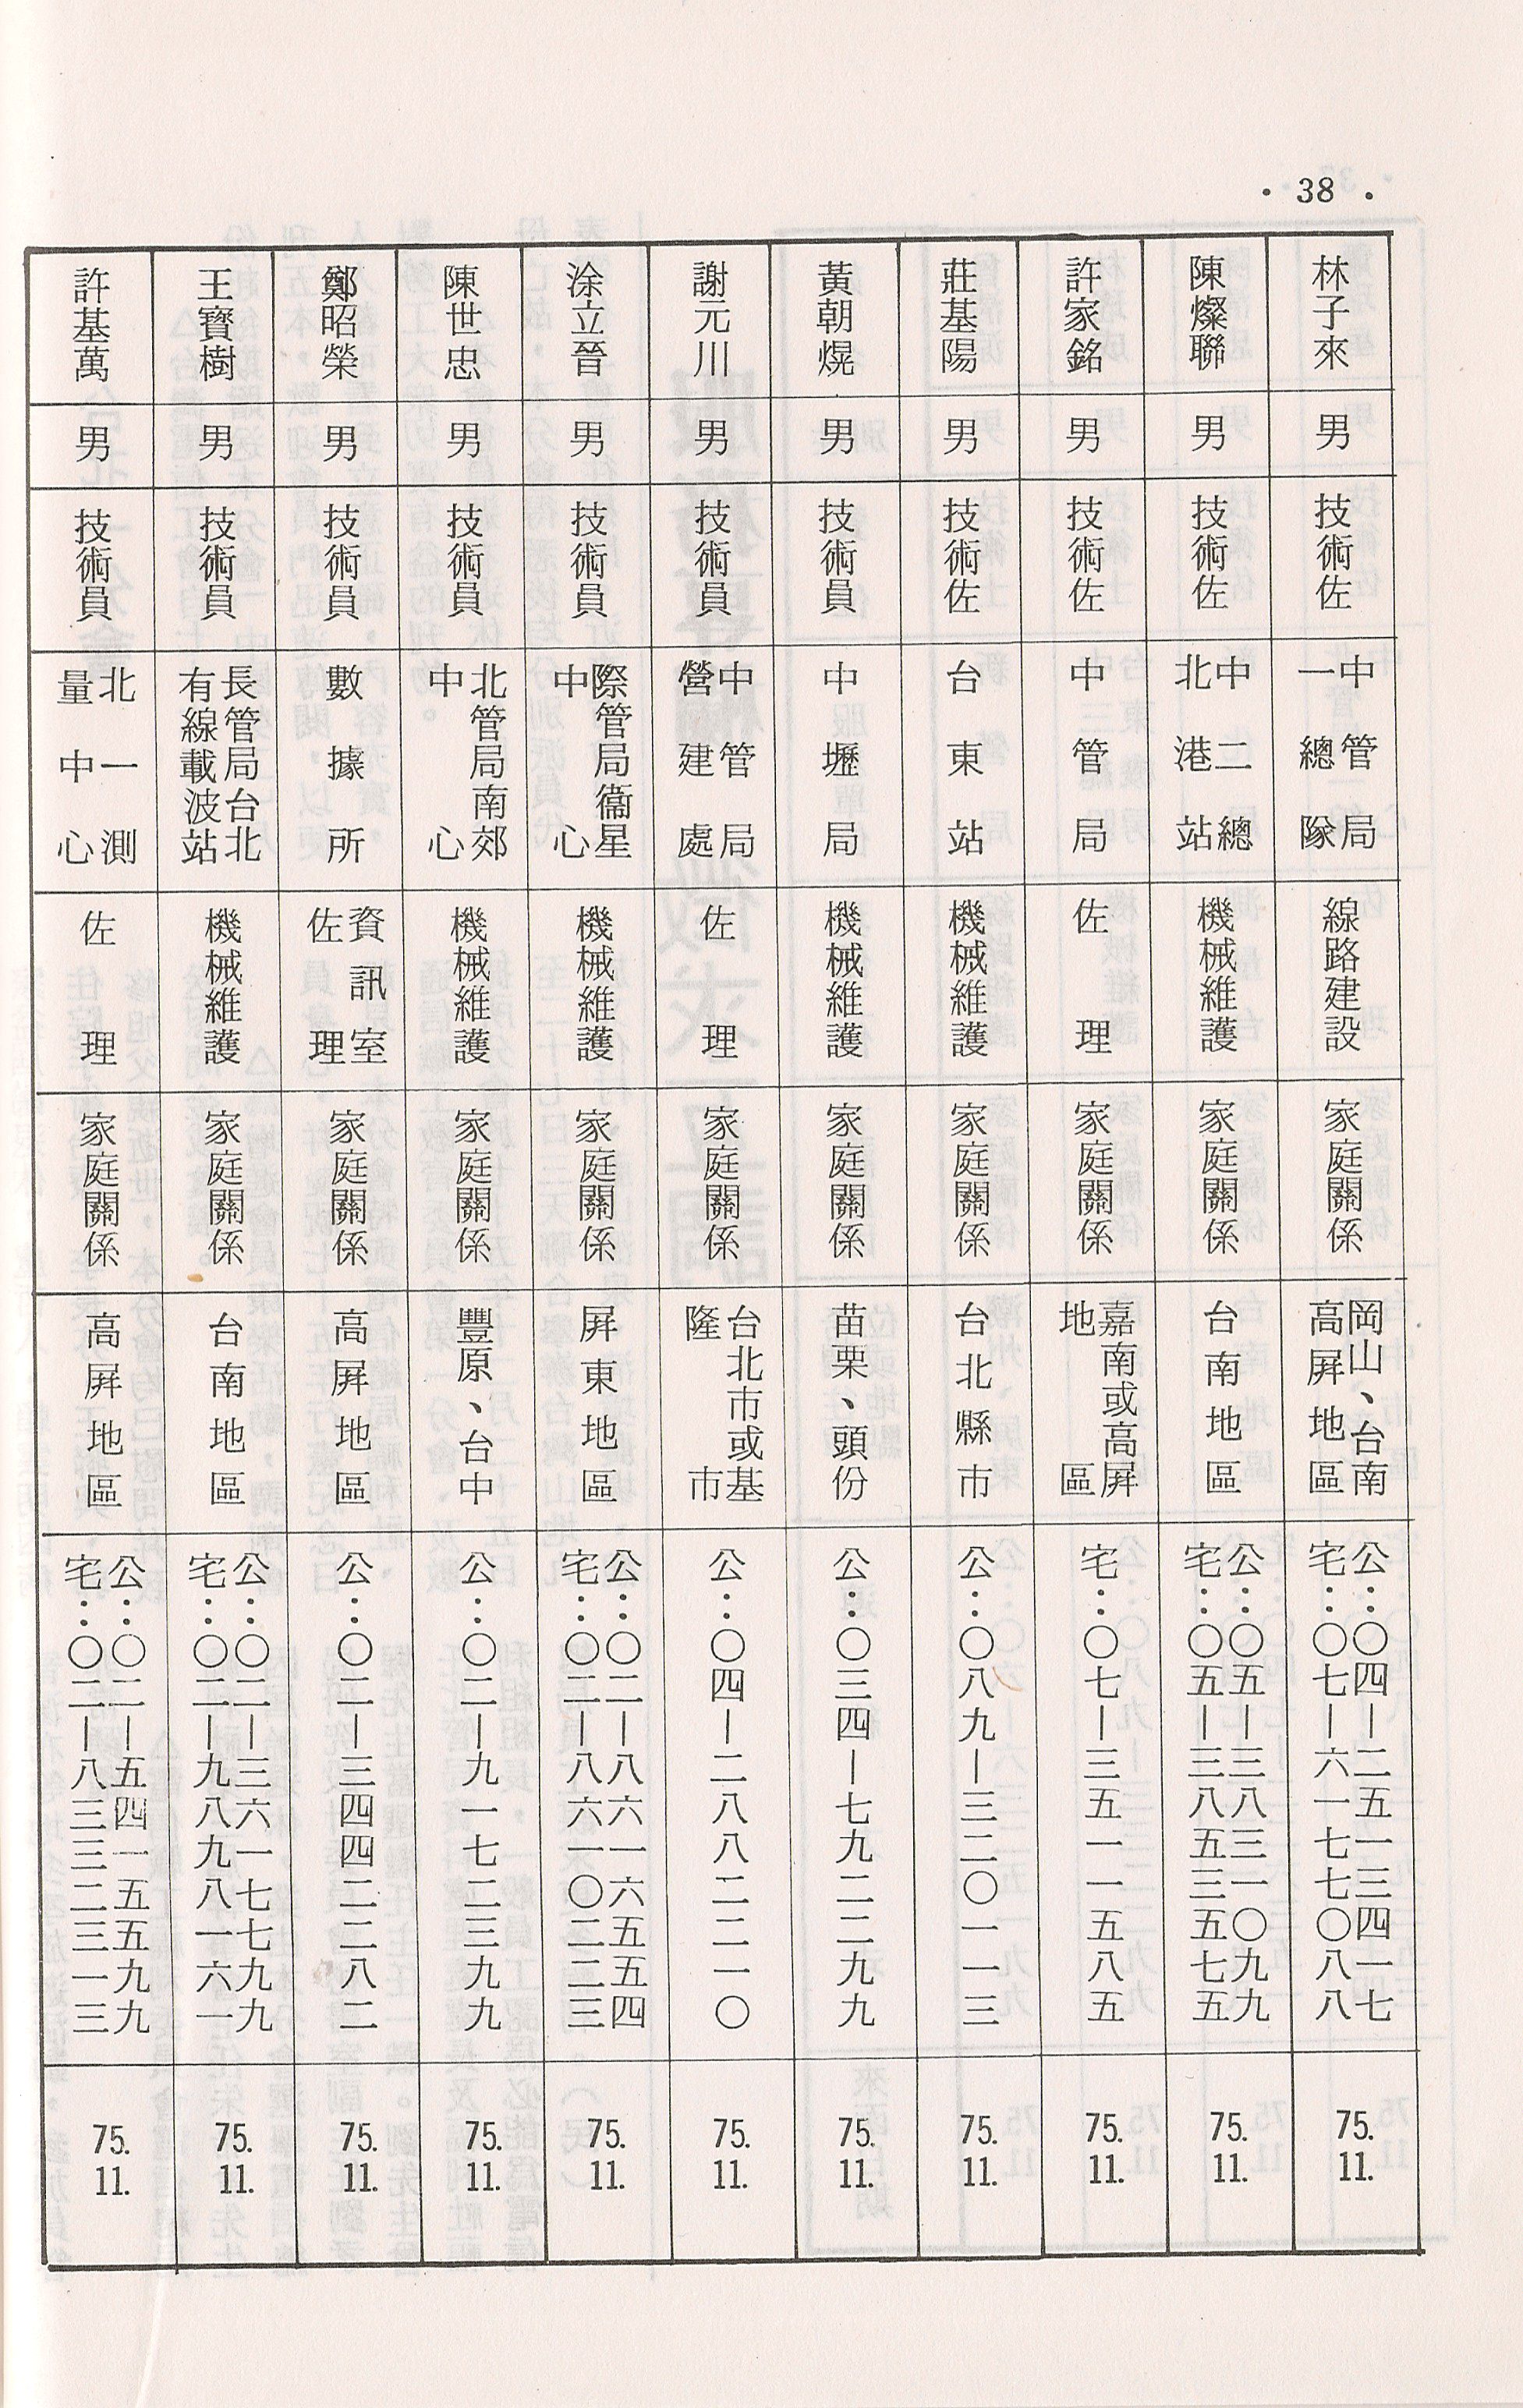 · 38 ·
林子來
男
技術佐
中管局
一總隊
線路建設
家庭關係
岡山、台南
高屏地區
公：〇四—二五一三四一七
宅：〇七—六一七七〇八八
75.
11.
陳燦聯
男
技術佐
中二總
北港站
機械維護
家庭關係
台南地區
公：〇五—三八三一〇九九
宅：〇五—三八五三五七五
75.
11.
許家銘
男
技術佐
中管局
佐理
家庭關係
嘉南或高屏
地區
宅：〇七—三五一一五八五
75.
11.
莊基陽
男
技術佐
台東站
機械維護
家庭關係
台北縣市
公：〇八九—三二〇一一三
75.
11.
黃朝焜
男
技術員
中壢局
機械維護
家庭關係
苗栗、頭份
公：〇三四—七九二二九九
75.
11.
謝元川
男
技術員
中管局
營建處
佐理
家庭關係
台北市或基
隆市
公：〇四—二八八二二一〇
75.
11.
涂立晉
男
技術員
際管局衞星
中心
機械維護
家庭關係
屏東地區
公：〇二—八六一六五五四
宅：〇二—八六一〇二二三
75.
11.
陳世忠
男
技術員
北管局南郊
中心
機械維護
家庭關係
豐原、台中
公：〇二—九一七二三九九
75.
11.
鄭昭榮
男
技術員
數據所
資訊室
佐理
家庭關係
高屏地區
公：〇二—三四四二二八二
75.
11.
王寶樹
男
技術員
長管局台北
有線載波站
機械維護
家庭關係
台南地區
公：〇二—三六一七七九九
宅：〇二—九八九八一六一
75.
11.
許基萬
男
技術員
北一測
量中心
佐理
家庭關係
高屏地區
公：〇二—五四一五五九九
宅：〇二—八三三二三一三
75.
11.